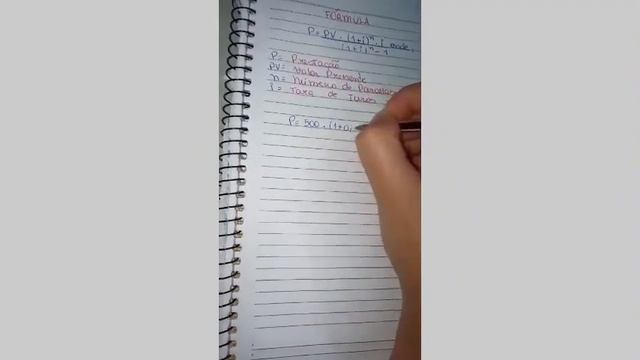 FÓRMULA
P = PV . (1+i)ⁿ . i onde,
(1+i)ⁿ - 1
P = Prestação
PV = Valor Presente
n = Número de Parcelas
i = Taxa de Juros
P = 500 . (1+0,